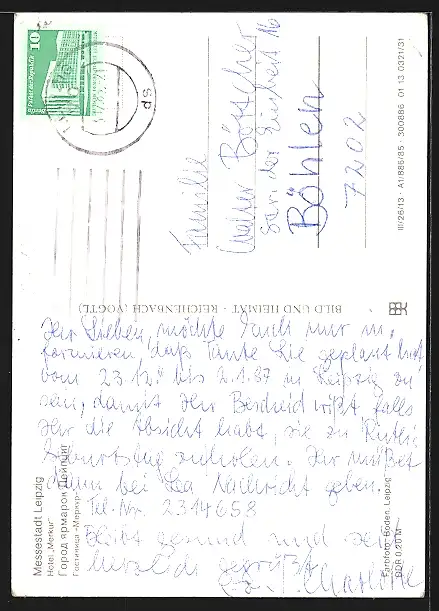 10
DDR
Familie
Walter Böttcher
Str. der Einheit 16
Böhlen
7202
III/26/13 · A1/886/85 300886 01 13 0321/31
BILD UND HEIMAT · REICHENBACH (VOGTL)
Ihr Lieben, möchte Euch nur in-
formieren, daß Tante Lie geplant hat
vom 23.12. bis 2.1.87 in Leipzig zu
sein, damit Ihr Bescheid wißt falls
Ihr die Absicht habt, sie zu
Geburtstag zu holen. Ihr müßtet
dann bei Lea Nachricht geben.
Tel. Nr. 2314658
Bleibt gesund und seid
herzlich gegrüßt
Charlotte
Messestadt Leipzig
Hotel „Merkur“
Город ярмарок Лейпциг
Гостиница «Меркур»
Farbfoto: Boden, Leipzig
DDR 0,20 M